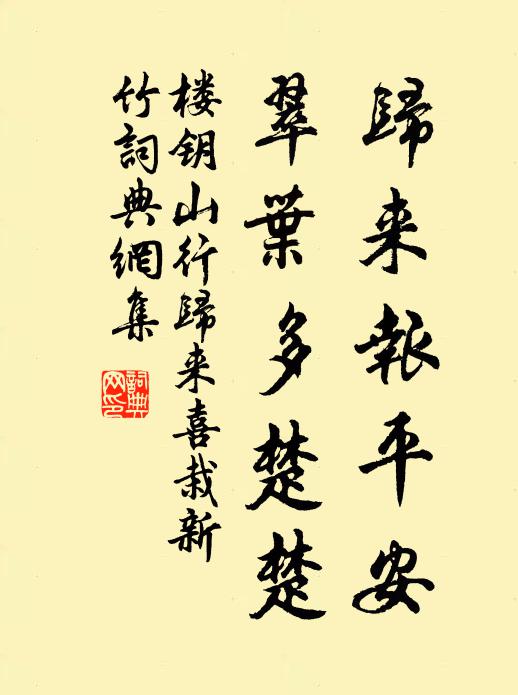 歸来報平安
翠葉多楚楚
楼钥山行歸来喜栽新
竹詞典網集
詞典
网印